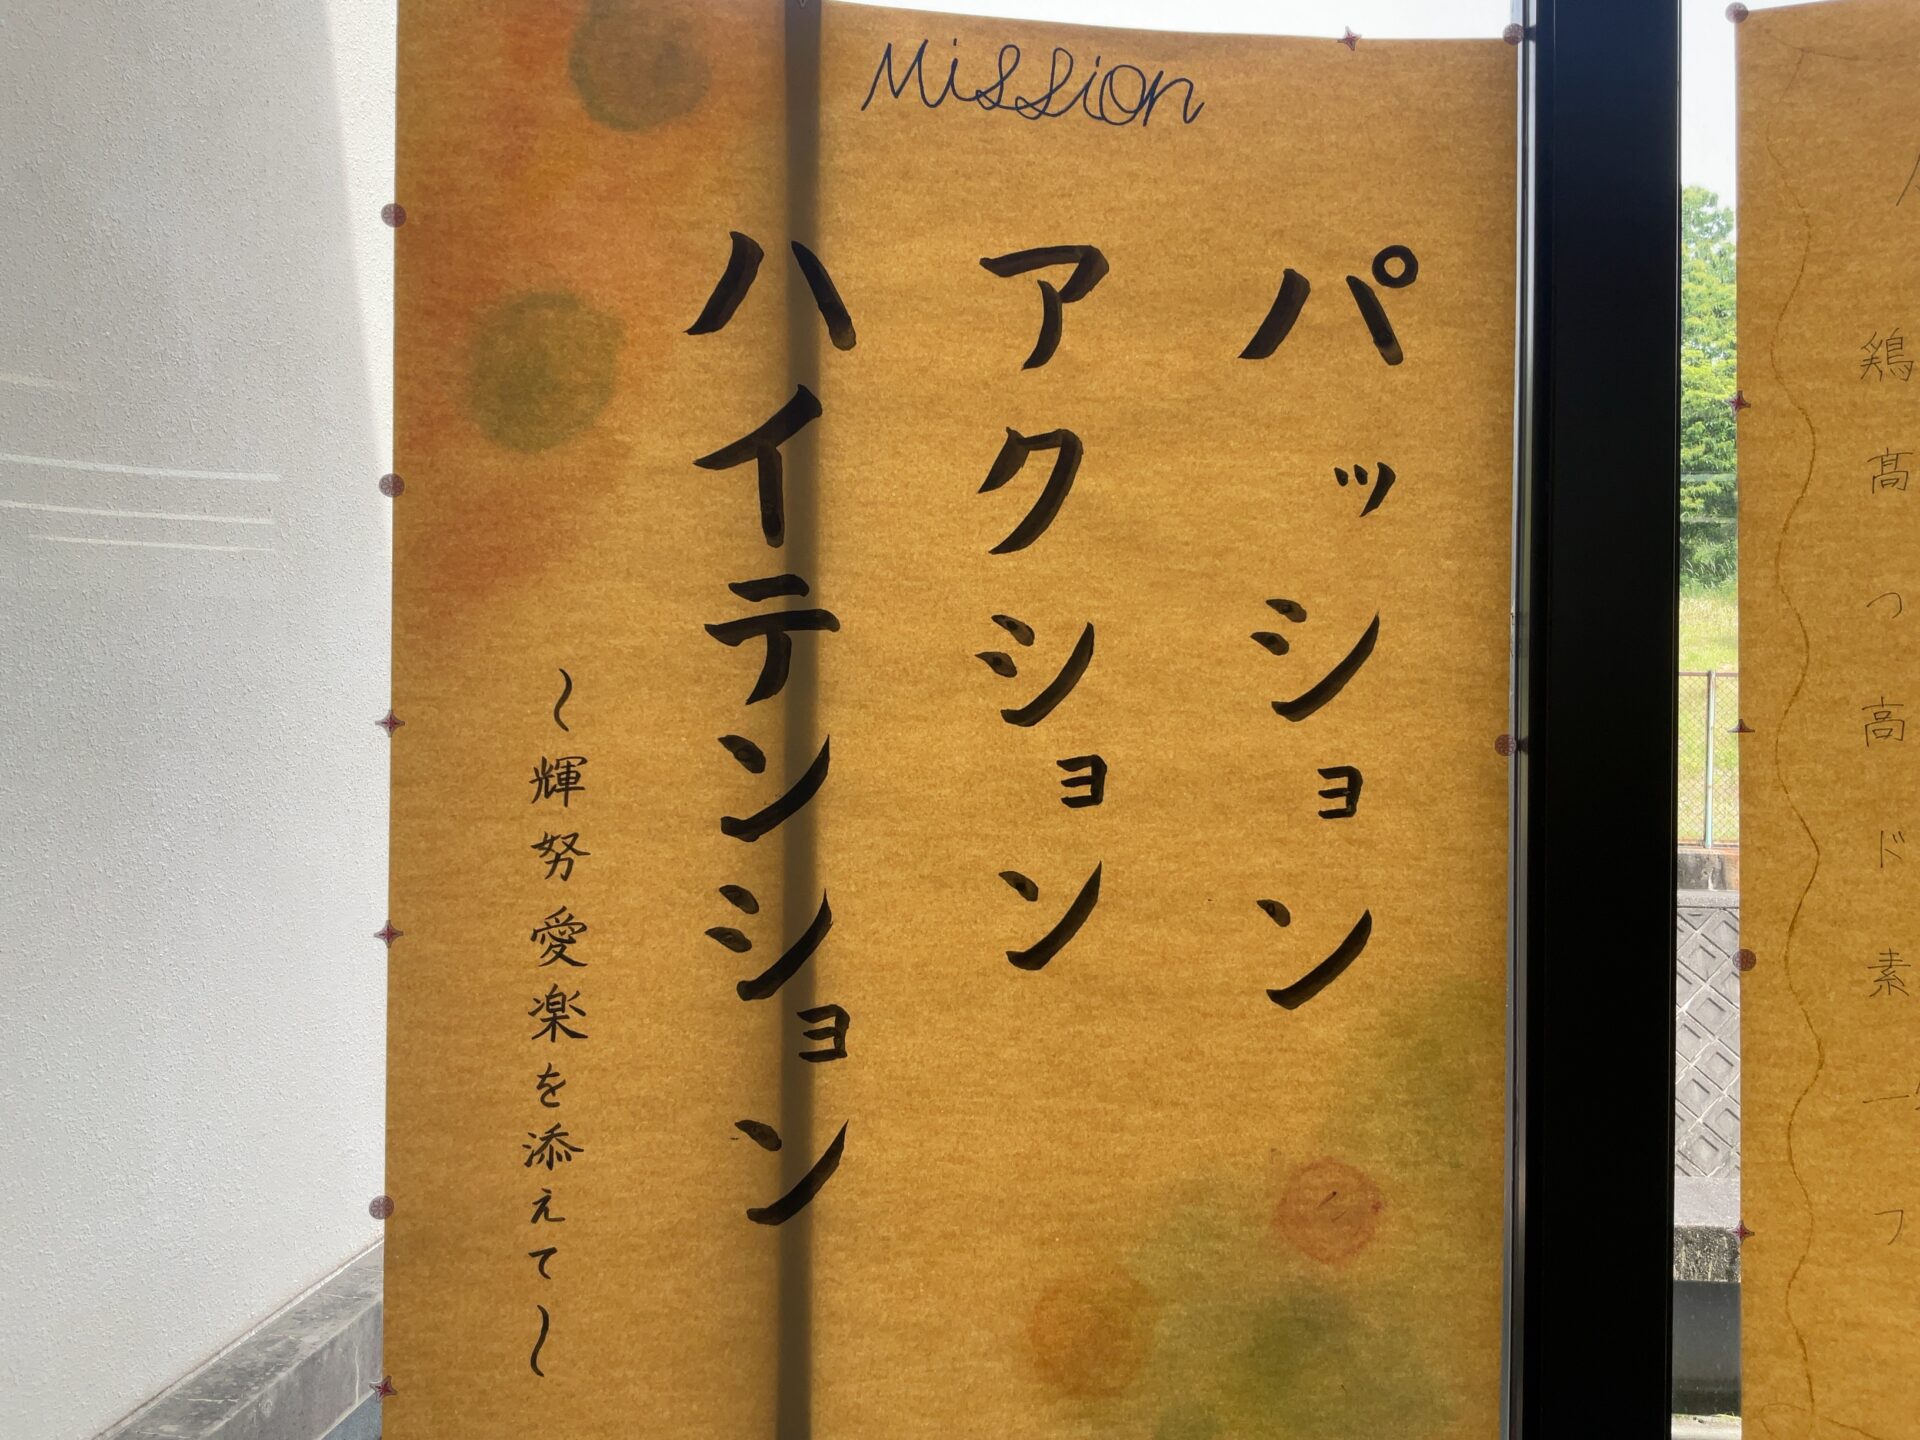 Mission
パッション
アクション
ハイテンション
〜輝努愛楽を添えて〜
鶏
高
つ
高
ド
素